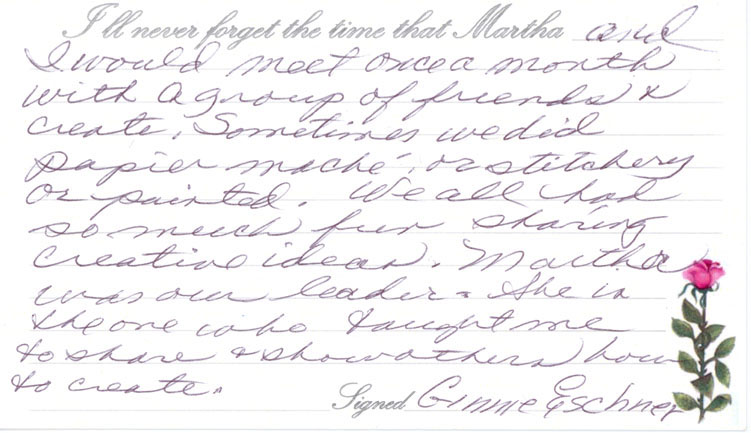 I'll never forget the time that Martha and
I would meet once a month
with a group of friends &
create. Sometimes we did
papier maché, or stitchery
or painted. We all had
so much fun sharing
creative ideas. Martha
was our leader. She is
the one who taught me
to share & show others how
to create.
Signed Ginnie Eschner